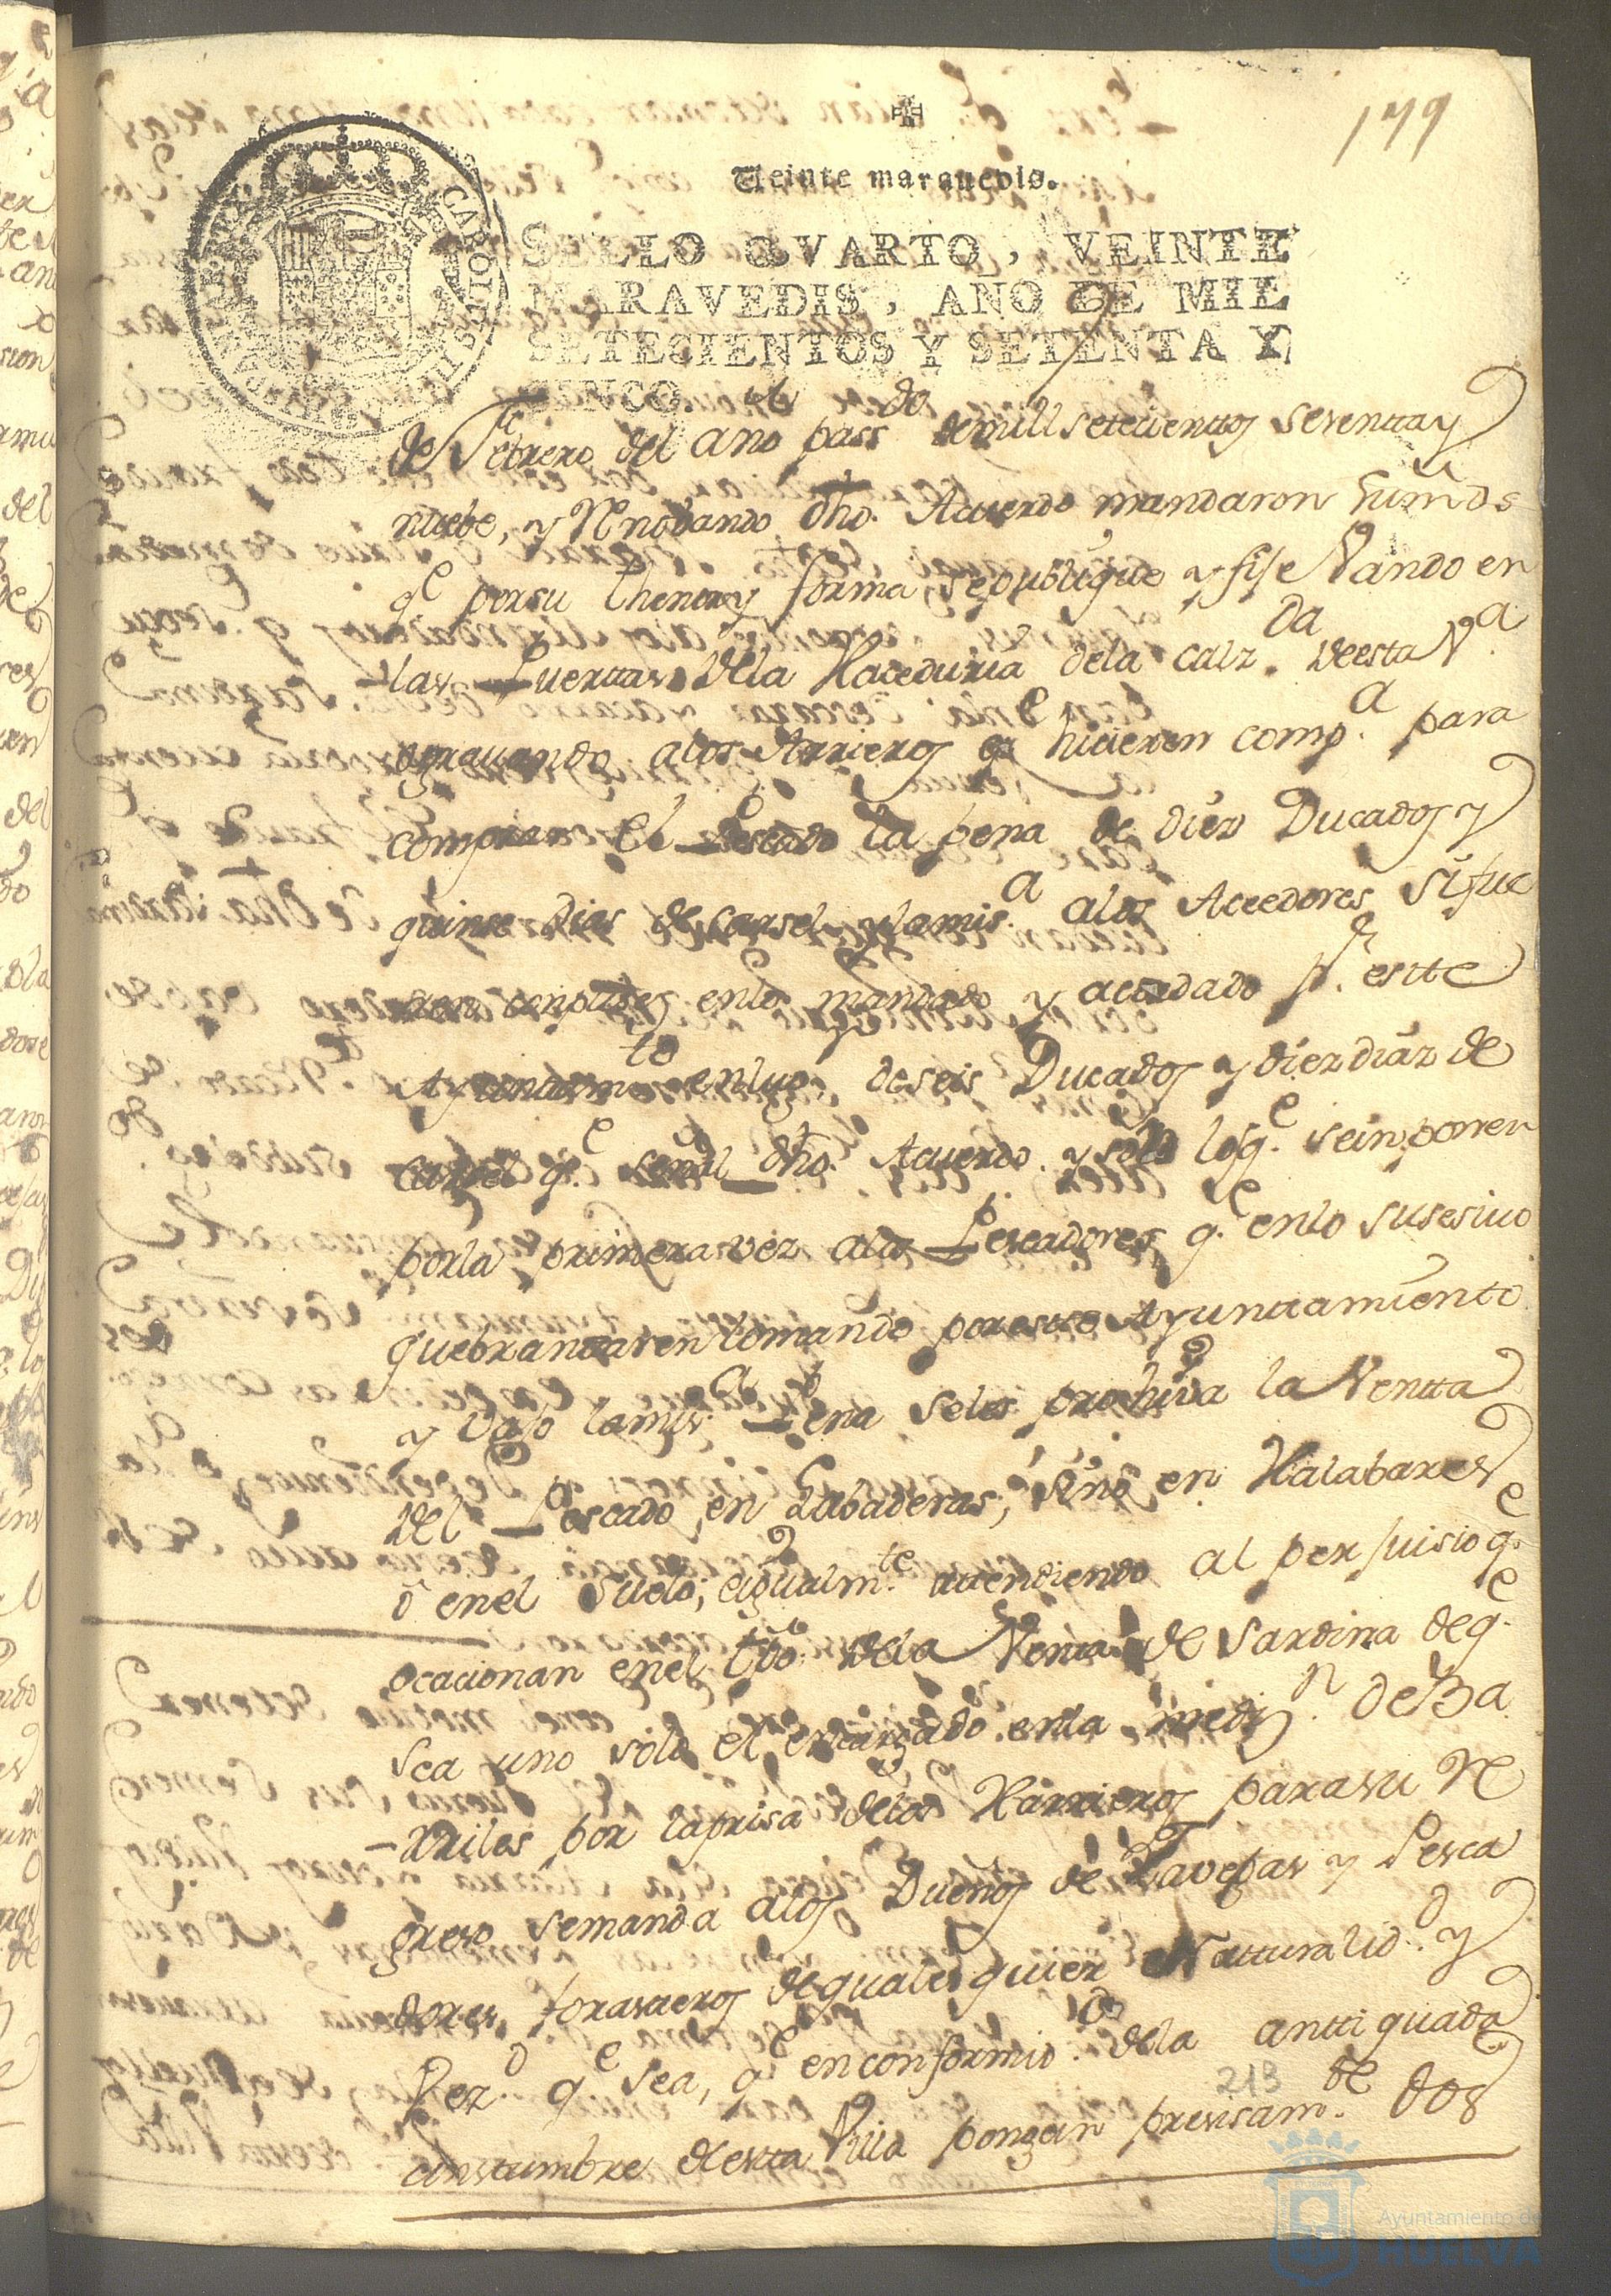 179
Veinte maravedis.
SELLO QVARTO, VEINTE
MARAVEDIS, AÑO DE MIL
SETECIENTOS Y SETENTA Y
CINCO.
CAROLUS III
de Febrero del ano pass.do de mill setecientos seventta y
nuebe, y Renobando dho. Acuerdo mandaron sumds
q.e por su thenor y forma, se publique y fije Vando en
las Puerttas de la Haceduria de la calz.da de esta V.a
agravando a los Arrieros q.e hicieren comp.a para
comprar el Pescado la pena de diez Ducados y
quinse dias de carsel y la mis.a a los Aceedores si fue
ren en lo mandado y acordado p.r estte
Ayuntam.to en lugr. de seis Ducados y diez diaz de
carsel q.e señal dho. Acuerdo. y solo los q.e se inponen
por la primera vez a los Pescadores q.e en lo susesivo
quebrantaren lo mando por este Ayunttamiento
y vajo la mis.a Pena se les prohiva la Ventta
del Pescado en Labaderas, sino en Halabares
ô en el suelo; e igualm.te attendiendo al perjuisio q.e
ocacionan en el tto. de la Venta de Sardina de q.e
sea uno solo el encargado en la medi.n de Ba
rriles por la prisa de los Harrieros para su Re
greso se manda a los Dueños de Xavegas y Pesca
dores forasteros de quales quier Natturalid.d y
Vez.d q.e sea, q.e en conformid.d de la anttiquada
custumbre de estta Villa pongan presisam.te dos
213
Ayuntamiento de
HUELVA